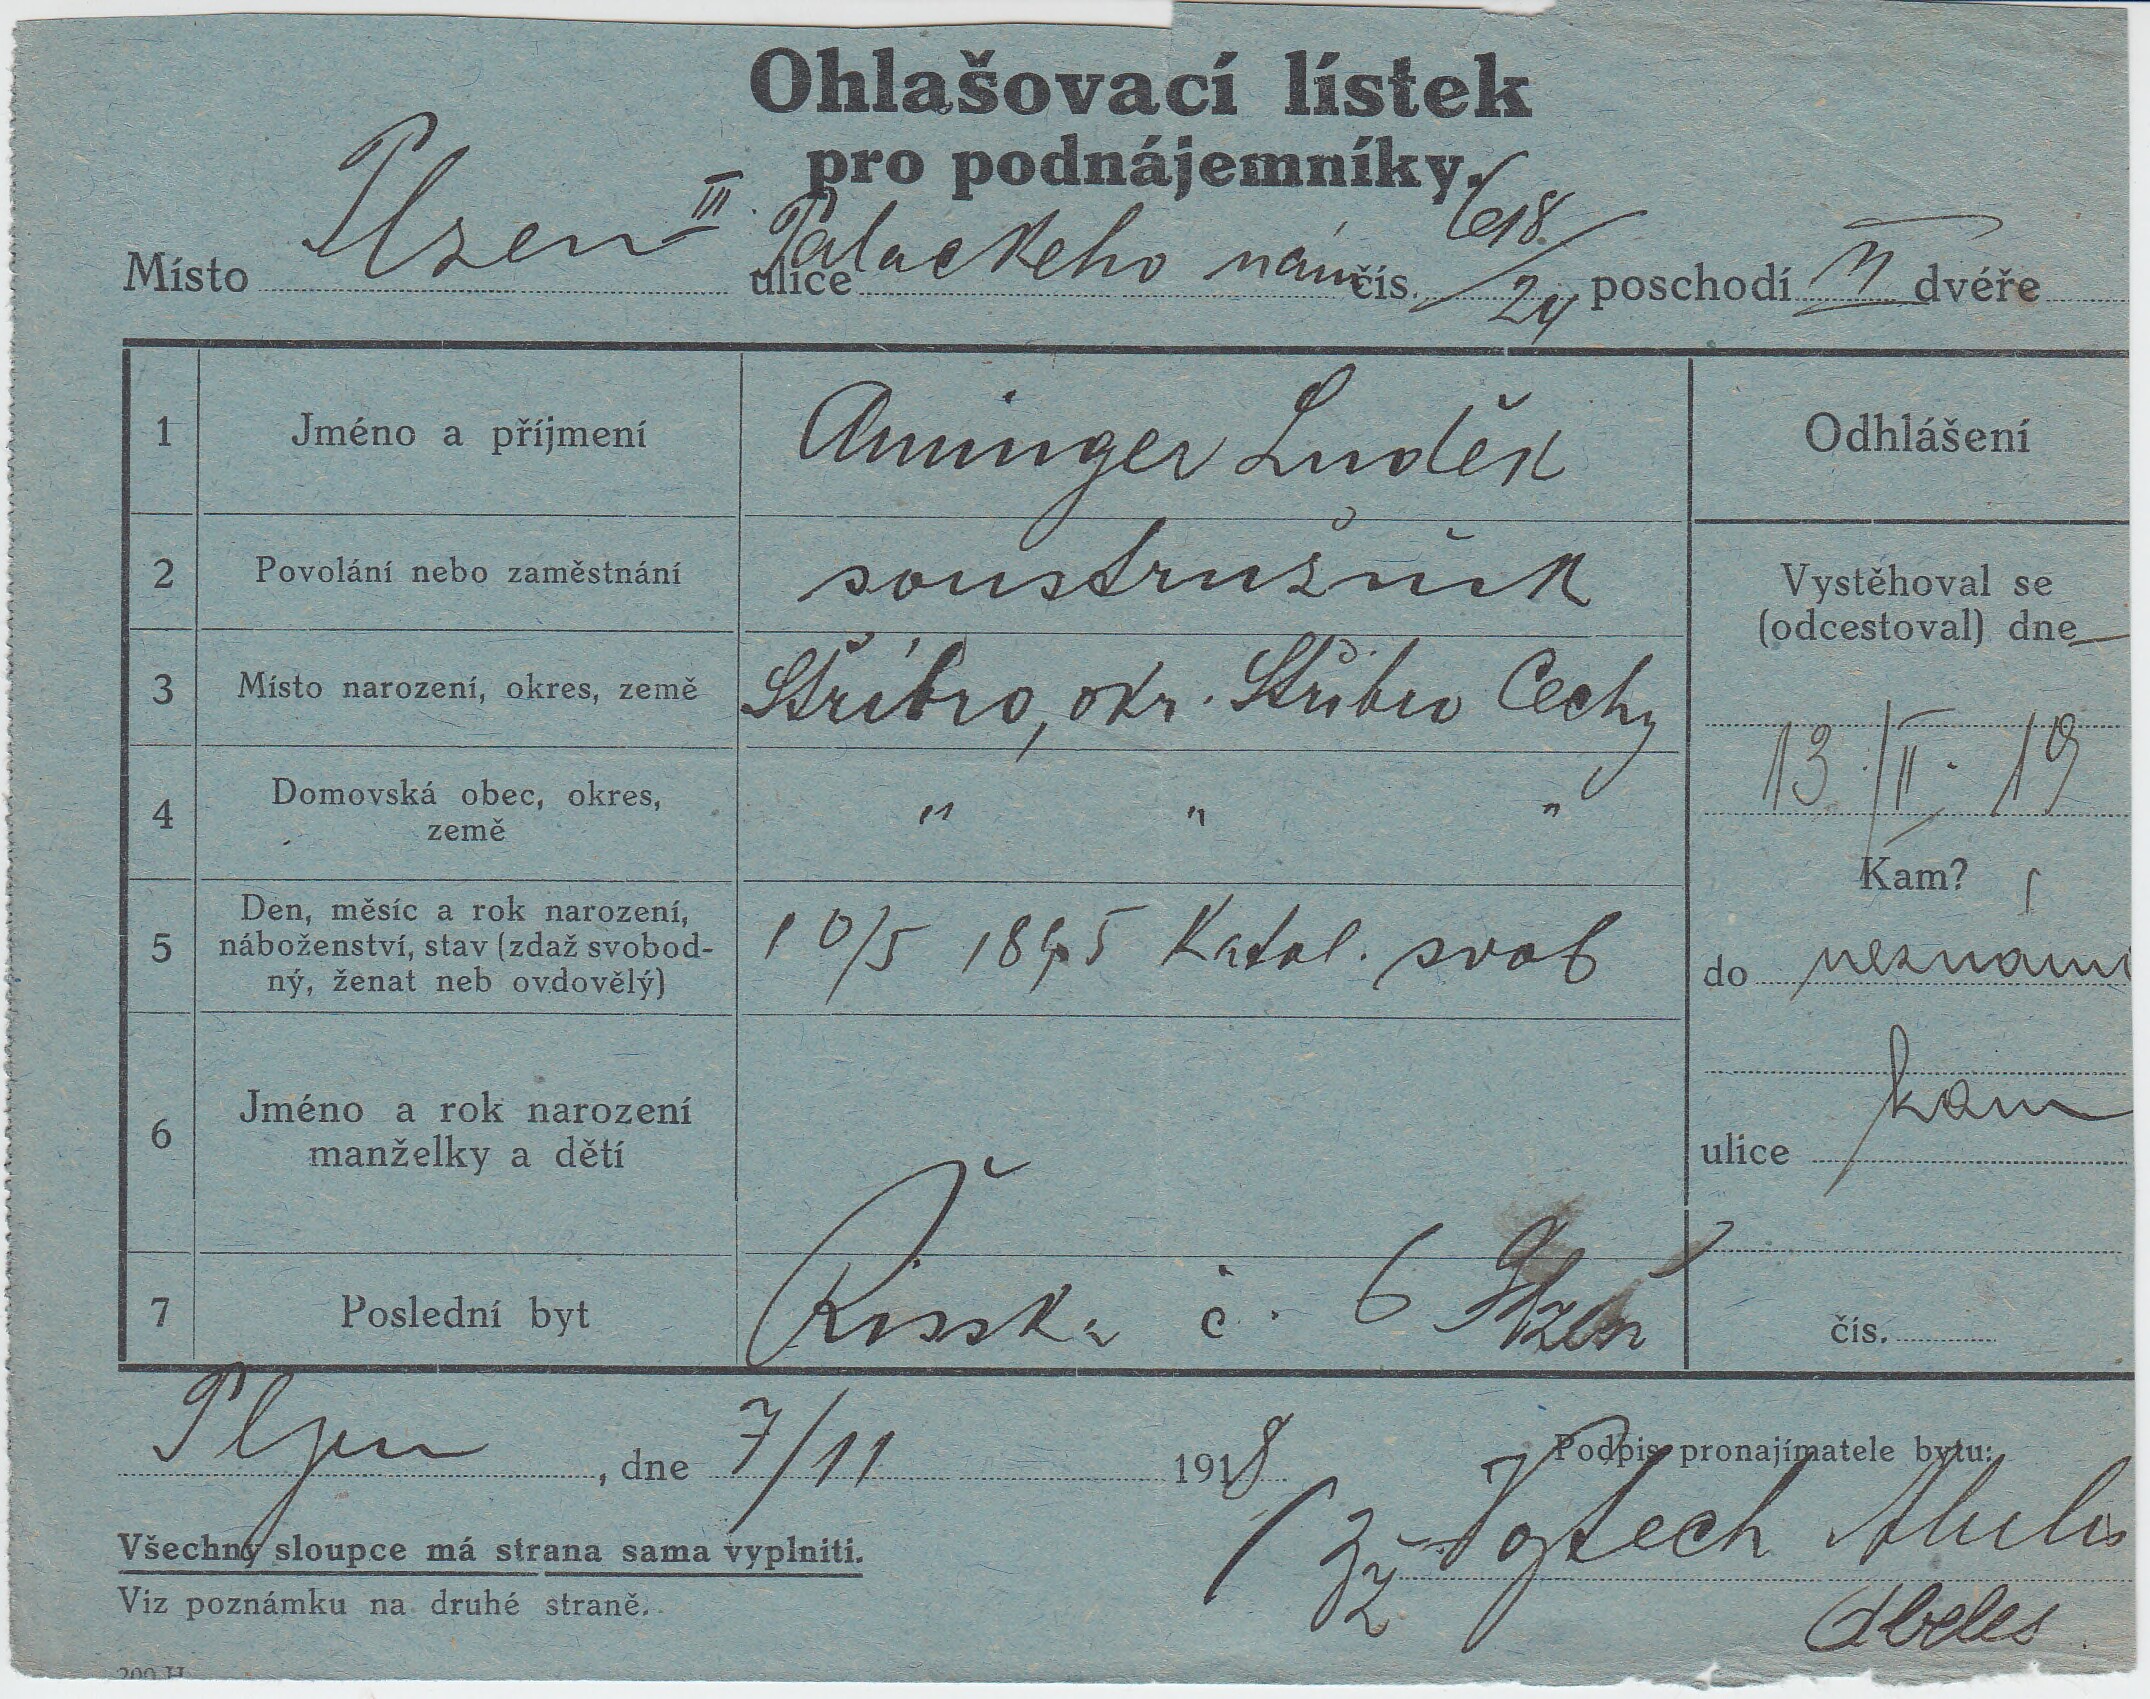 Ohlašovací lístek
pro podnájemníky.
Místo Plzen III. ulice Palackeho nám čís. 618/24 poschodí II dvéře
1 Jméno a příjmení Aminger Luděk
Odhlášení
2 Povolání nebo zaměstnání soustružník
Vystěhoval se
(odcestoval) dne
3 Místo narození, okres, země Stříbro, okr. Stříbro Cechy
13./II. 19
4 Domovská obec, okres,
země " " "
Kam?
5 Den, měsíc a rok narození,
náboženství, stav (zdaž svobod-
ný, ženat neb ovdovělý) 10/5 1895 Katol. svob
do neznámo
6 Jméno a rok narození
manželky a dětí
kam
ulice
7 Poslední byt Řísska č. 6 Plzeň
čís.
Plzen, dne 7/11 1918
Podpis pronajímatele bytu:
Vojtech Abeles
Všechny sloupce má strana sama vyplniti.
Viz poznámku na druhé straně.
Abeles
200 H